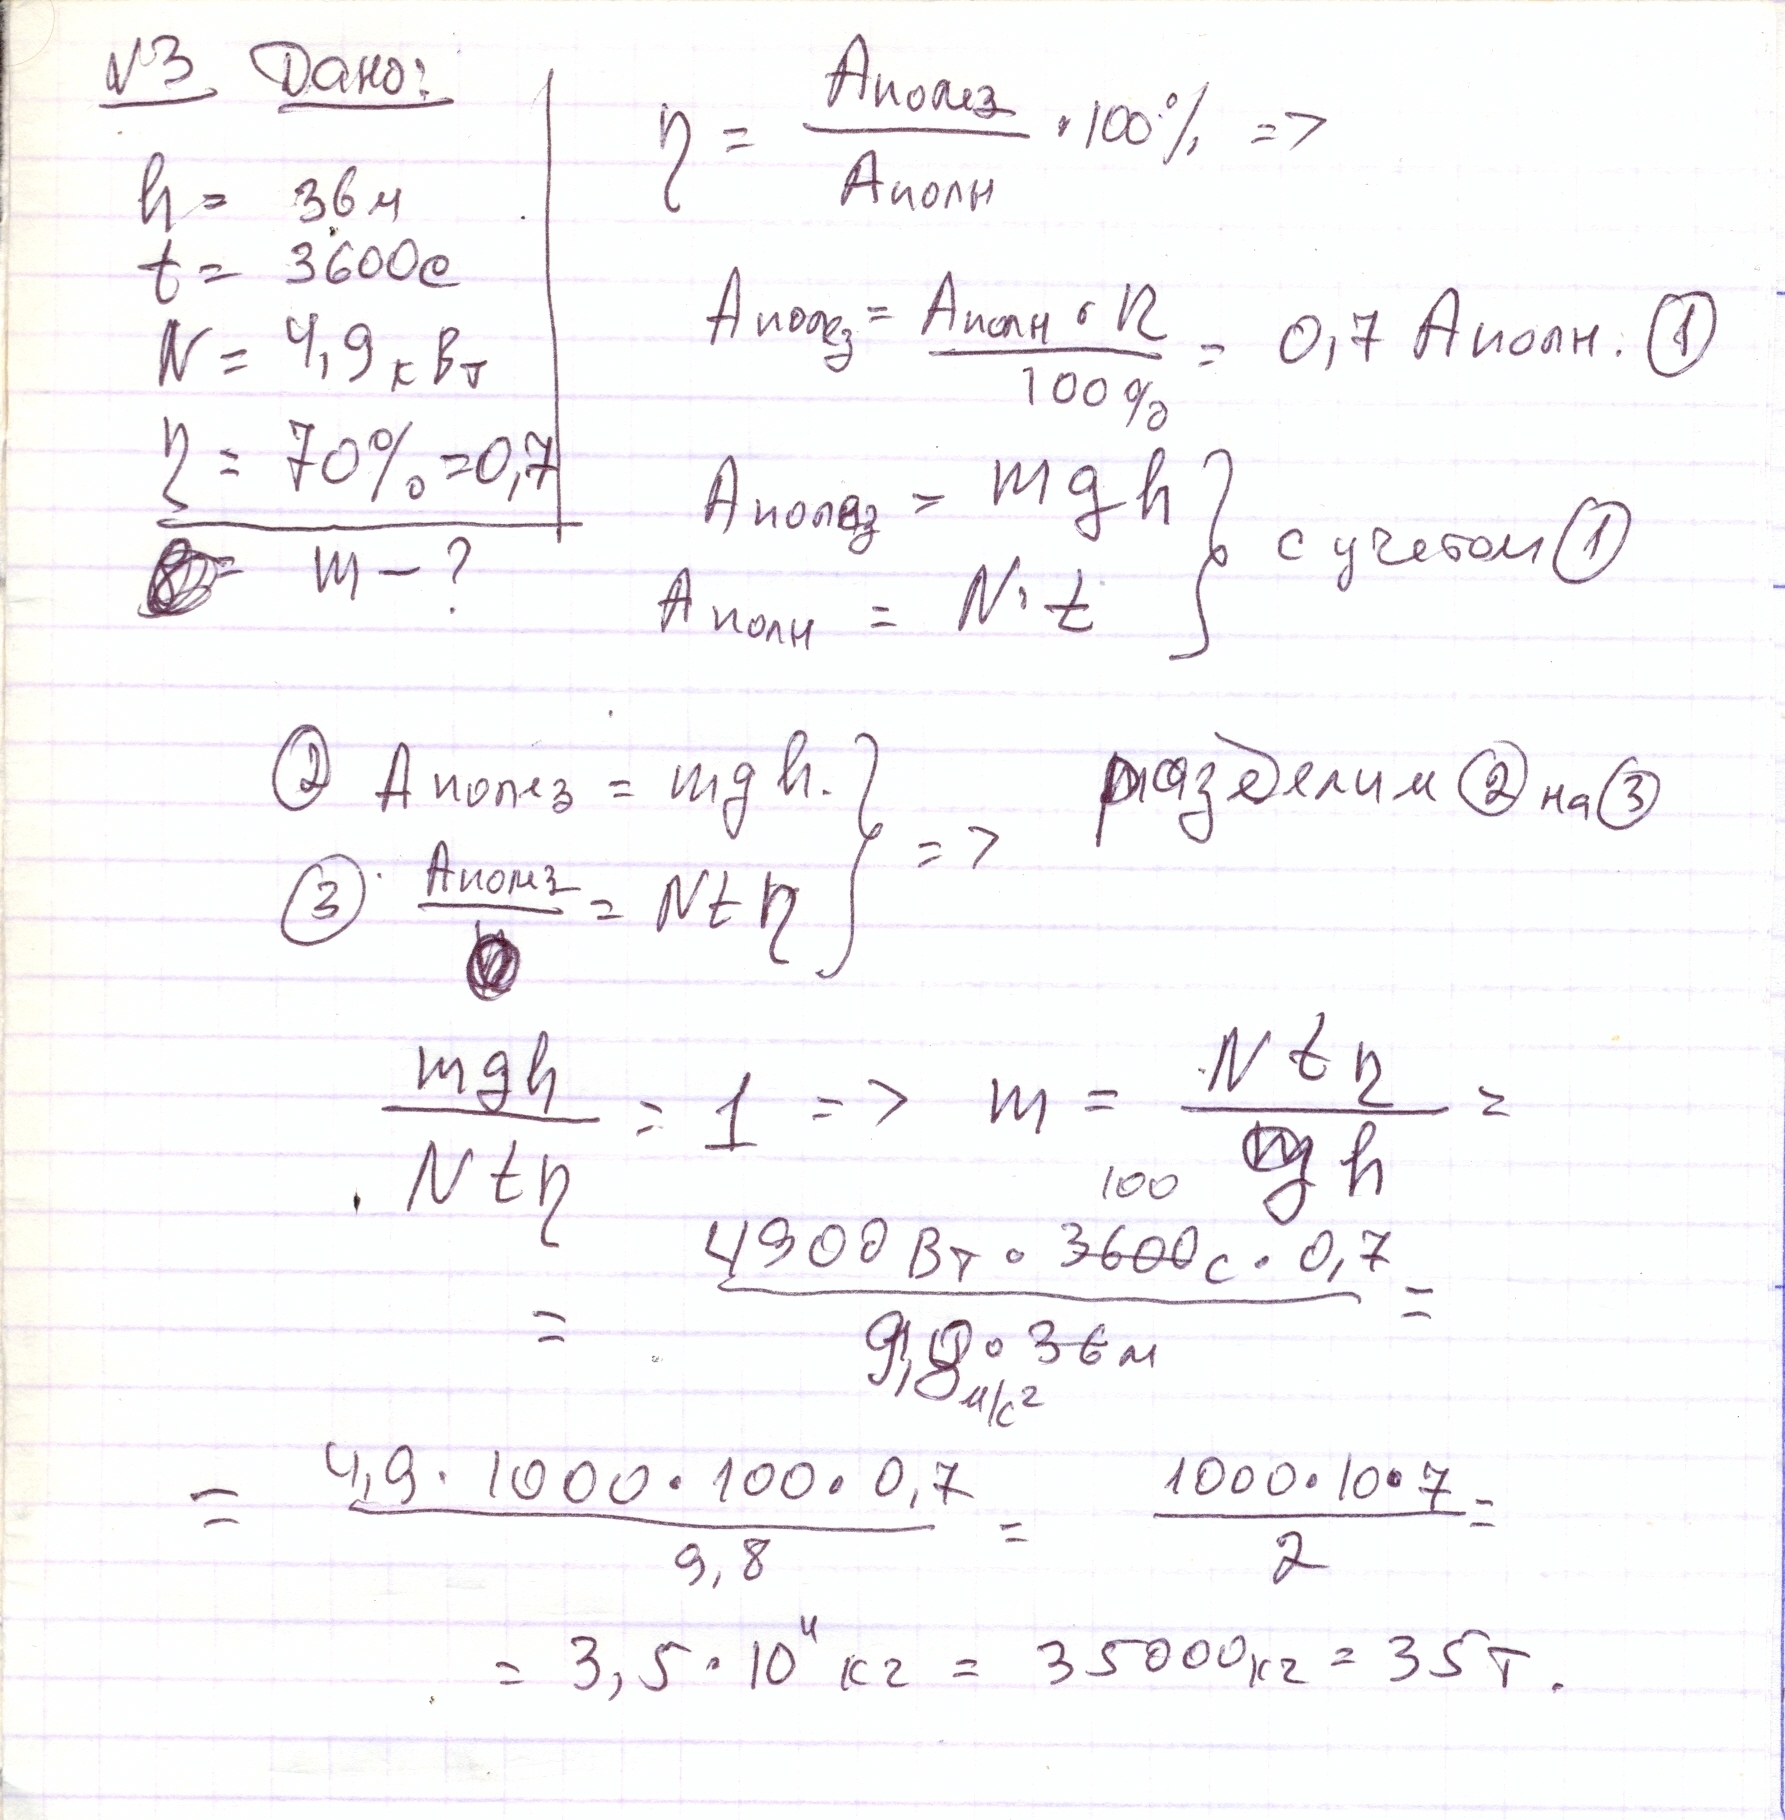 №3 Дано:
h = 36 м
t = 3600 с
N = 4,9 кВт
η = 70% = 0,7
m - ?
η = Aполез / Aполн · 100% =>
Aполез = Aполн · η / 100% = 0,7 Aполн. ①
Aполез = mgh
Aполн = N·t } с учетом ①
② Aполез = mgh.
③ Aполез = Ntη } => разделим ② на ③
mgh / Ntη = 1 => m = Ntη / gh =
100
= 4900 Вт · 3600 с · 0,7 / 9,8 м/с² · 36 м =
= 4,9 · 1000 · 100 · 0,7 / 9,8 = 1000 · 10 · 7 / 2 =
= 3,5 · 10⁴ кг = 35000 кг = 35 т.